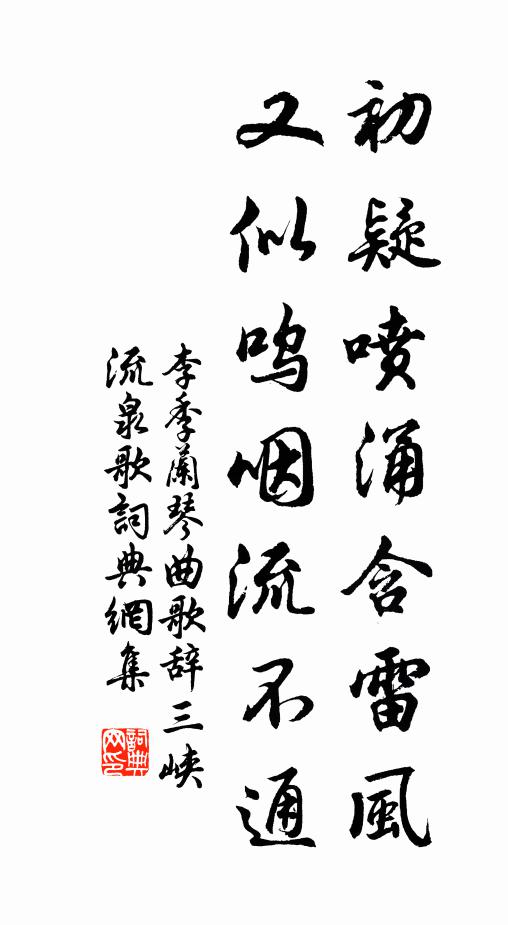 初疑噴涌含雷風
又似鳴咽流不通
李季蘭琴曲歌辞三峽
流泉歌詞典網集
詞典
网印